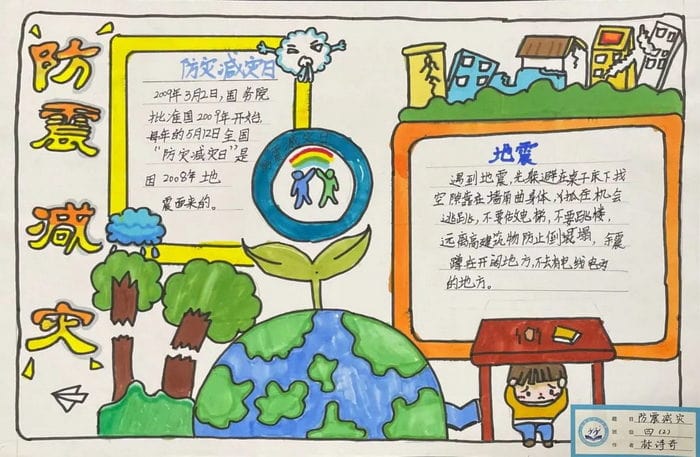 防震减灾
防灾减灾日
2009年3月2日,国务院
批准国2009年开始
每年的5月12日全国
"防灾减灾日"是
因2008年地
震而来的。
防灾减灾日
地震
遇到地震,先躲避在桌子床下找
空隙靠在墙角曲身体,从机会
逃跑,不要做电梯,不要跳楼,
远离高建筑物防止倒塌,余震
蹲在开阔地方,不去有电线
的地方。
题目 防震减灾
班级 四(2)
作者 林诗奇